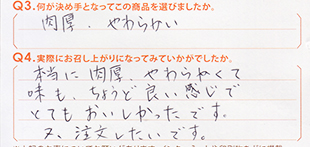 Q3.何が決め手となってこの商品を選びましたか。
肉厚、やわらかい
Q4.実際にお召し上がりになってみていかがでしたか。
本当に肉厚、やわらかくて
味も、ちょうど良い感じで
とてもおいしかったです。
又、注文したいです。